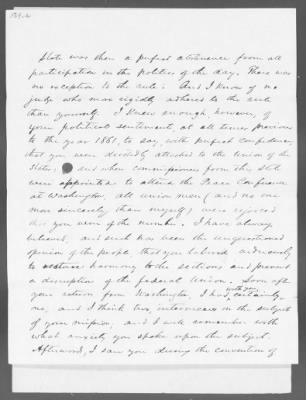 State was then a perfect abstinence from all
participation in the politics of the day. There was
no exception to the rule: And I know of no
judge who more rigidly adhered to the rule
than yourself. I knew enough however, of
your political sentiments, at all times previous
to the year 1861, to say, with perfect confidence,
that you were devotedly attached to the Union of the
States; and when commissioners from this State
were appointed to attend the Peace Conference
at Washington, all union men (and no one
more sincerely than myself) were rejoiced
that you were of the number. I have always
believed, and such has been the unquestioned
opinion of the people, that you labored arduously
to restore harmony to the sections and prevent
a disruption of the federal Union. Soon after
your return from Washington, I had, certainly
with you
one, and I think two, interviews on the subject
of your mission, and I well remember with
what anxiety you spoke upon the subject.
Afterward, I saw you during the convention of